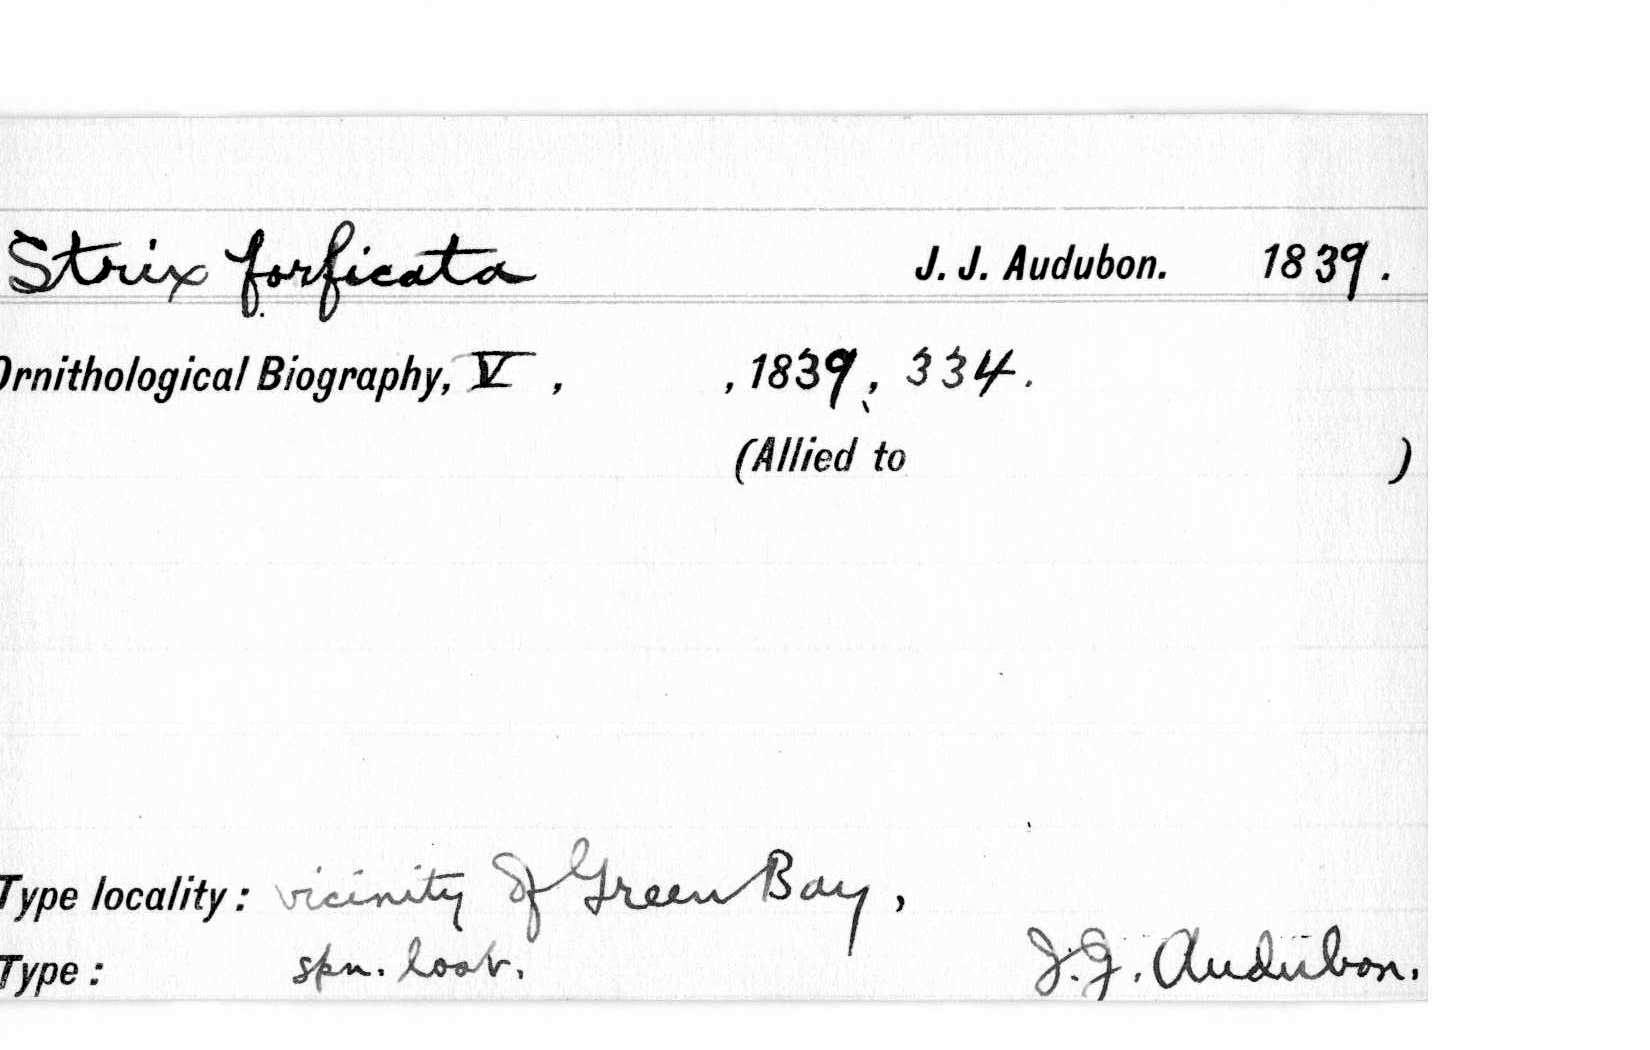 Strix forficata J. J. Audubon. 1839.
Ornithological Biography, V , , 1839, 334.
(Allied to )
Type locality: vicinity of Green Bay,
Type: spn. J. J. Audubon.